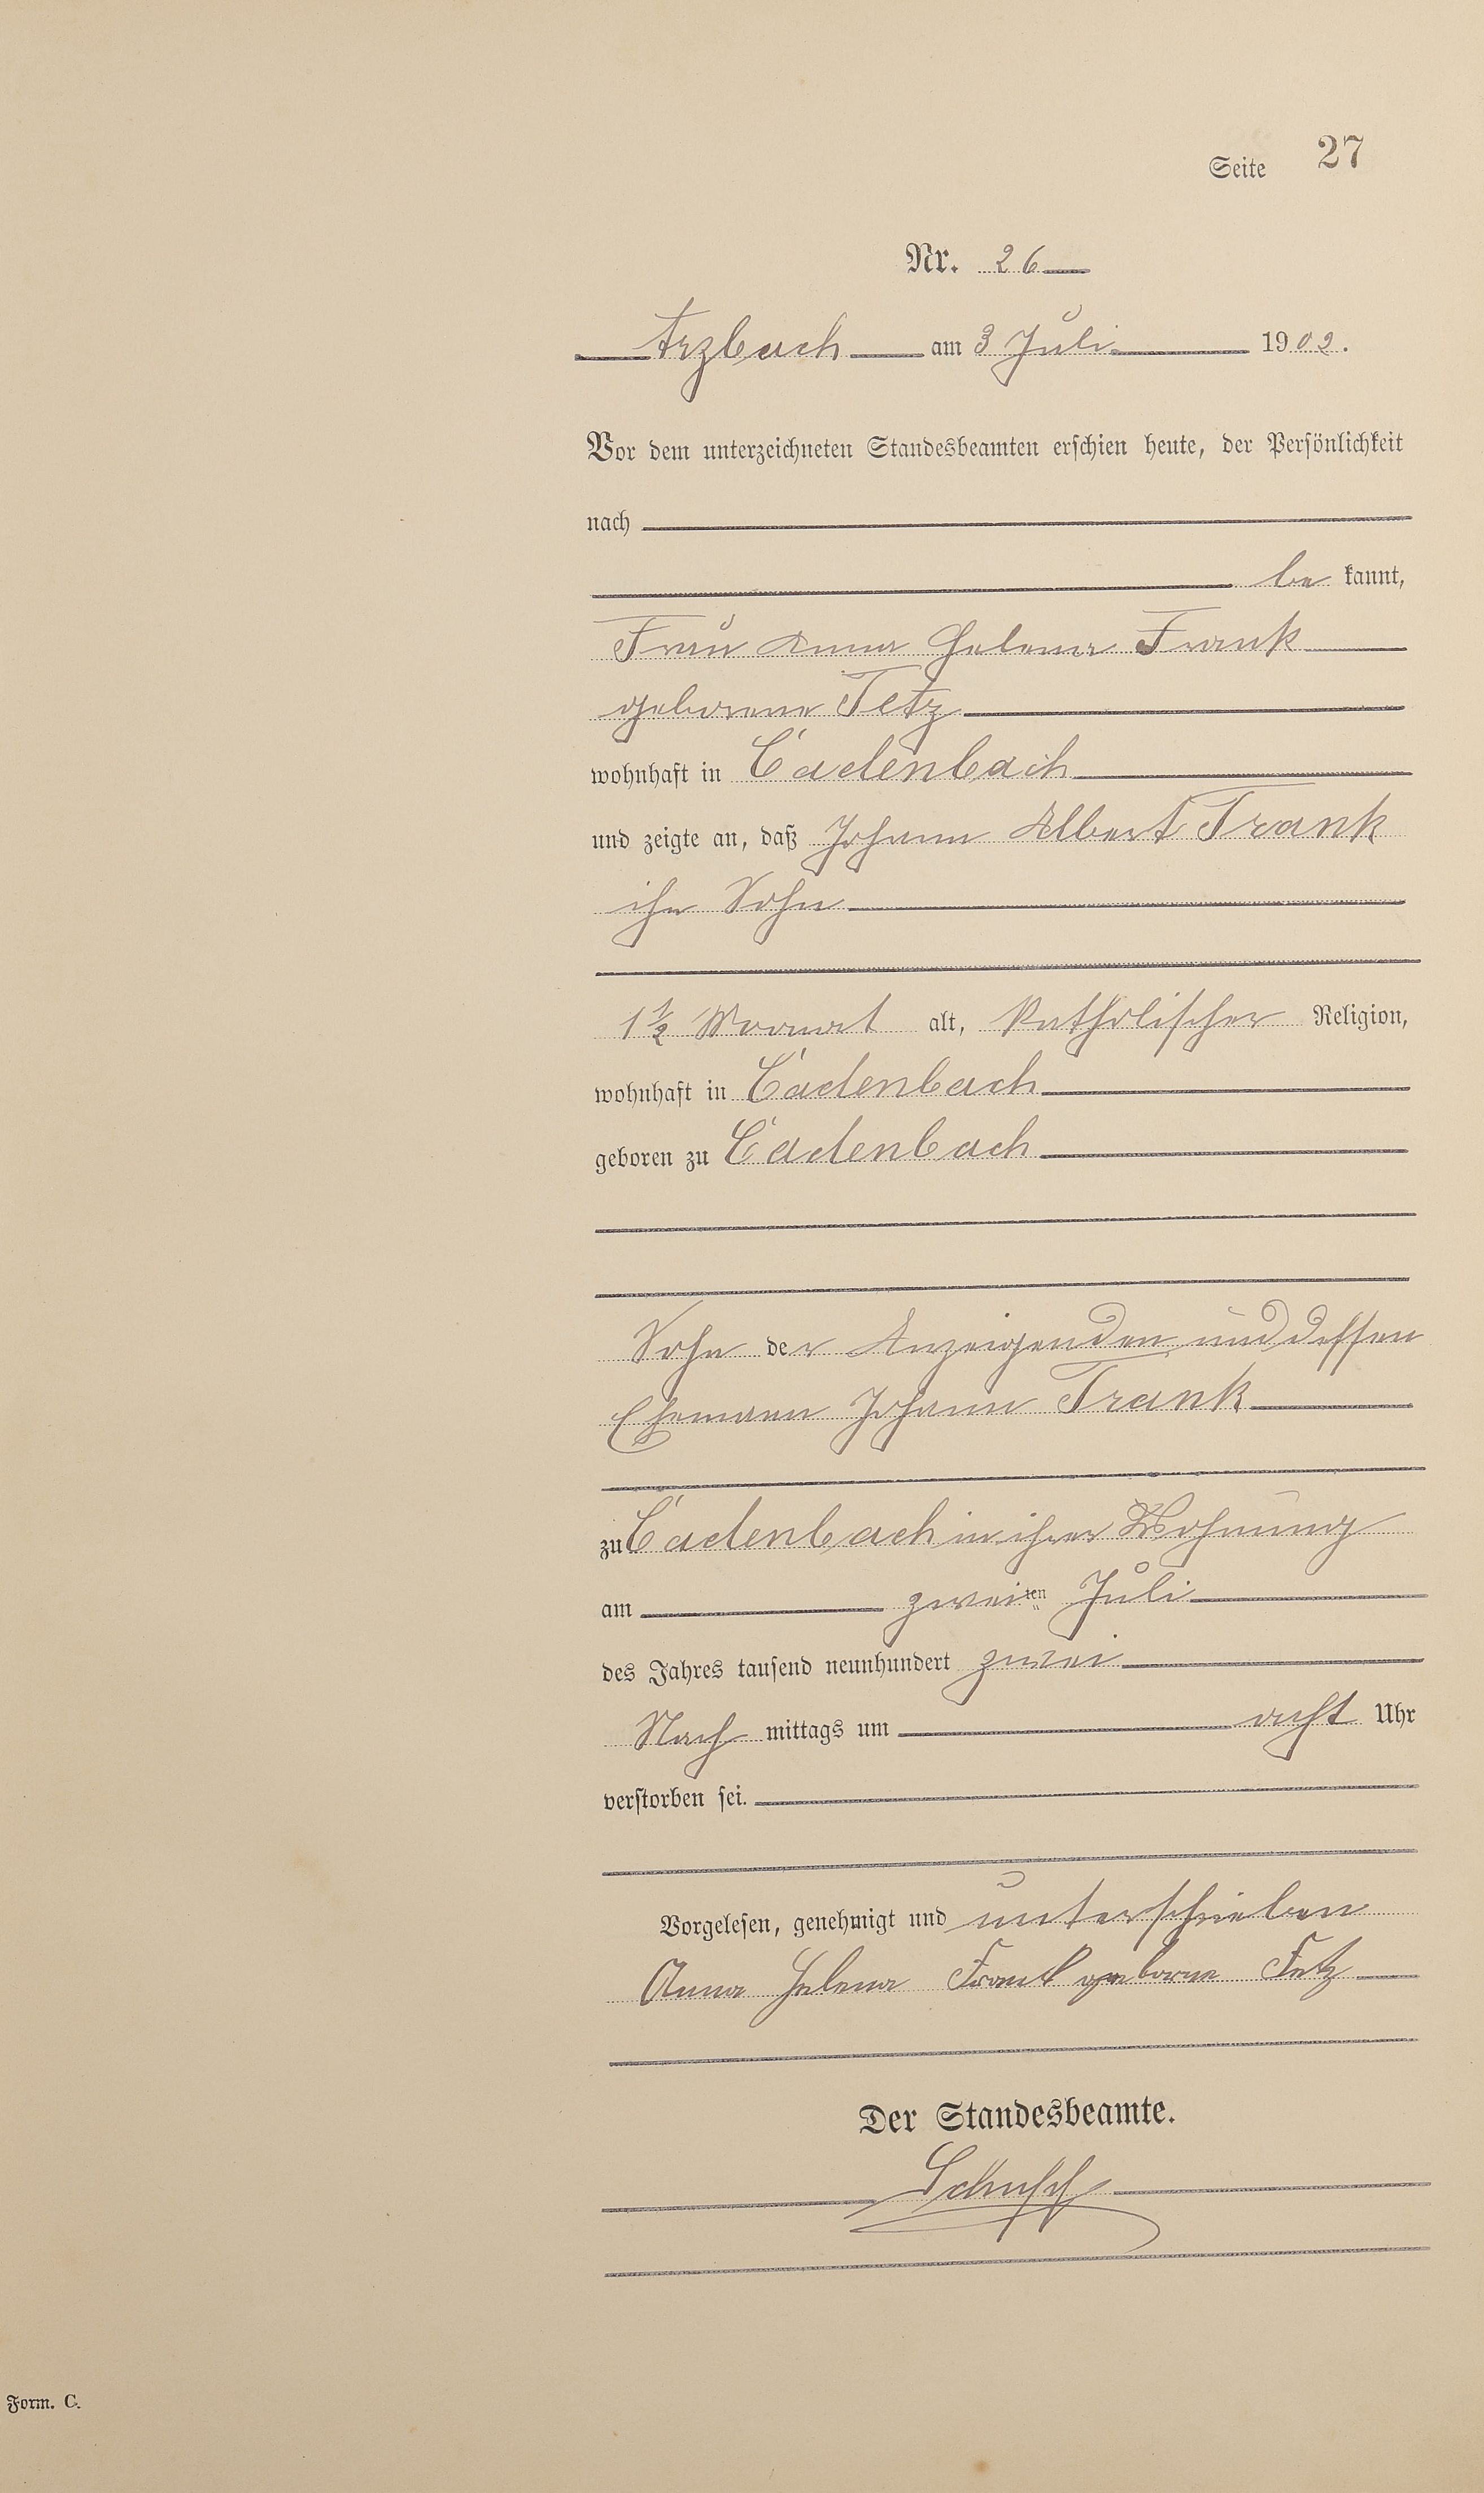 Seite 27
Nr. 26
Arzbach am 3 Juli 1902.
Vor dem unterzeichneten Standesbeamten erschien heute, der Persönlichkeit
nach
be kannt,
Frau Anna Helena Frank
geborene Fetz
wohnhaft in Cadenbach
und zeigte an, daß Johann Albert Frank
ihr Sohn
1½ Monat alt, katholischer Religion,
wohnhaft in Cadenbach
geboren zu Cadenbach
Sohn der Anzeigenden und dessen
Ehemann Johann Frank
zu Cadenbach in ihrer Wohnung
am zweiten Juli
des Jahres tausend neunhundert zwei
Nach mittags um acht Uhr
verstorben sei.
Vorgelesen, genehmigt und unterschrieben
Anna Helena Frank geborne Fetz
Der Standesbeamte.
Form. C.